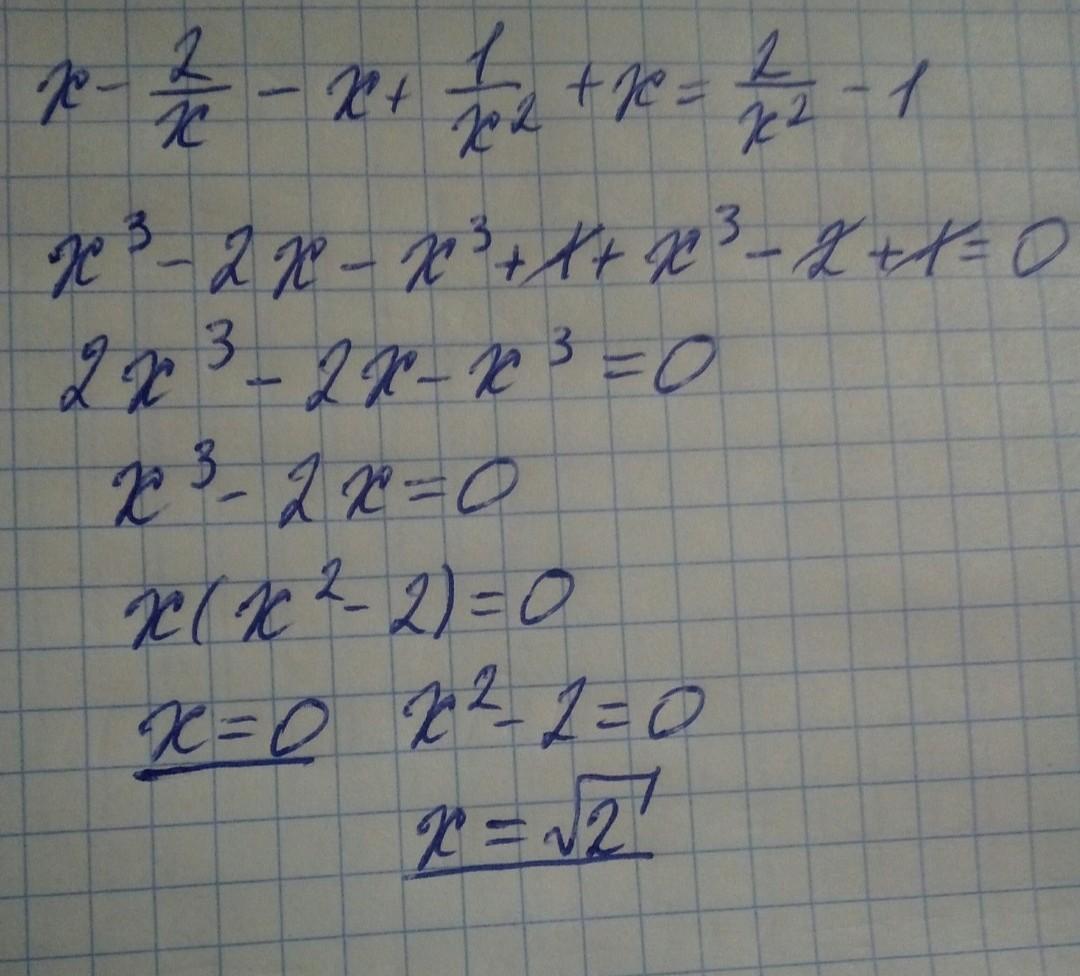 x - 2/x - x + 1/x² + x = 2/x² - 1
x³ - 2x - x³ + 1 + x³ - 2 + 1 = 0
2x³ - 2x - x³ = 0
x³ - 2x = 0
x(x² - 2) = 0
x = 0 x² - 2 = 0
x = √2